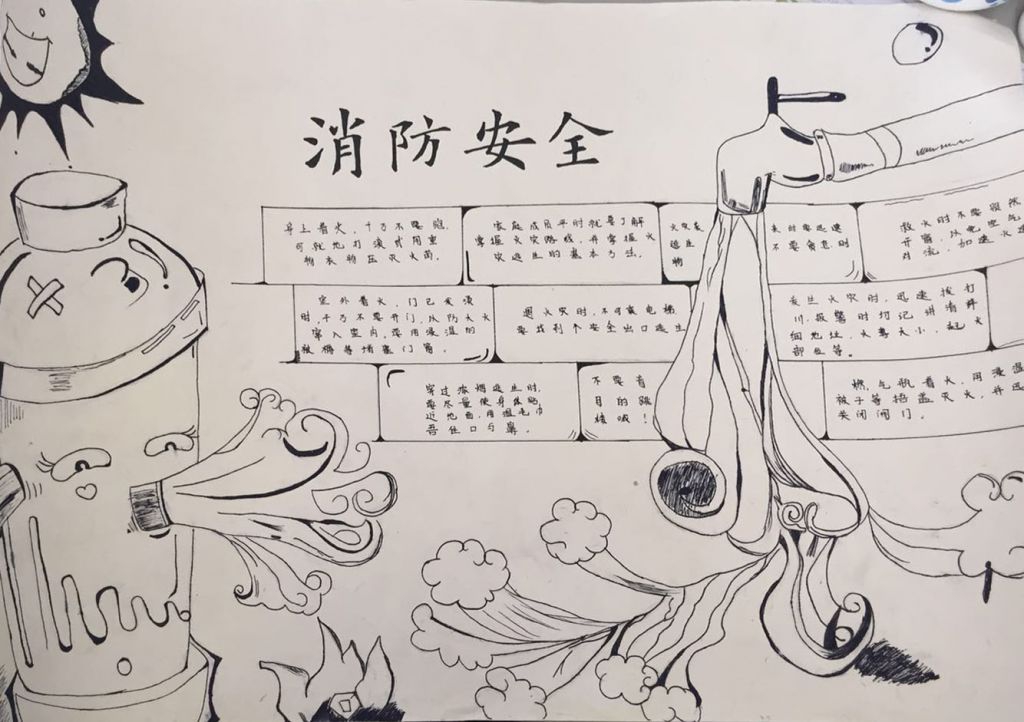 消防安全
身上着火，千万不要跑，
可就地打滚或用重
物衣物压灭火苗。
家庭成员平时就要了解
掌握火灾路线，并掌握火
灾逃生的基本方法。
火灾袭
逃生
物
来时要迅速
不要贪恋财
救火时不要
开窗，以免空气
对流，加速火
室外着火，门已发烫
时，千万不要开门，以防大火
窜入室内，要用浸湿的
被褥等堵塞门窗。
遇火灾时，不可乘电梯
要找到个安全出口逃生
发生火灾时，迅速拨打
报警时切记讲清详
细地址，火势大小，起火
部位等。
穿过浓烟逃生时，
要尽量使身体贴
近地面，用湿毛巾
捂住口与鼻。
不要盲
目的跳
楼喊！
燃气瓶着火，用浸湿
被子等捂盖灭火，并迅
关闭阀门。